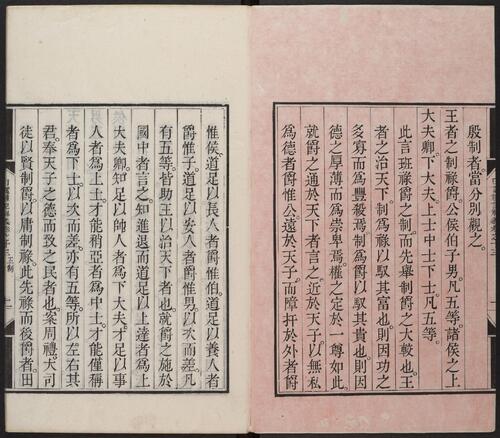 殷制者。當分別觀之。
王者之制祿爵。公侯伯子男。凡五等。諸侯之上
大夫卿。下大夫。上士中士下士。凡五等。
此言班祿爵之制。而先舉制爵之大較也。王
者之治天下。制為祿以馭其富也。則因功之
多寡。而為豐殺焉。制為爵以馭其貴也。則因
德之厚薄。而為崇卑焉。權之定於一尊如此。
就爵之通於天下者言之。近於天子。以無私
為德者爵惟公。遠於天子。而障扞於外者爵
惟侯。道足以長人者爵惟伯。道足以養人者
爵惟子。道足以安人者爵惟男。以次而差。凡
有五等。皆助王以治天下者也。就爵之施於
國中者言之。知進退而道足以上達者為上
大夫卿。知足以帥人者為下大夫。才足以事
人者為上士。才能稍亞者為中士。才能僅稱
者為下士。以次而差。亦有五等。所以左右其
君。奉天子之德而致之民者也。案周禮。大司
徒以賢制爵。以庸制祿。此先祿而後爵者。田